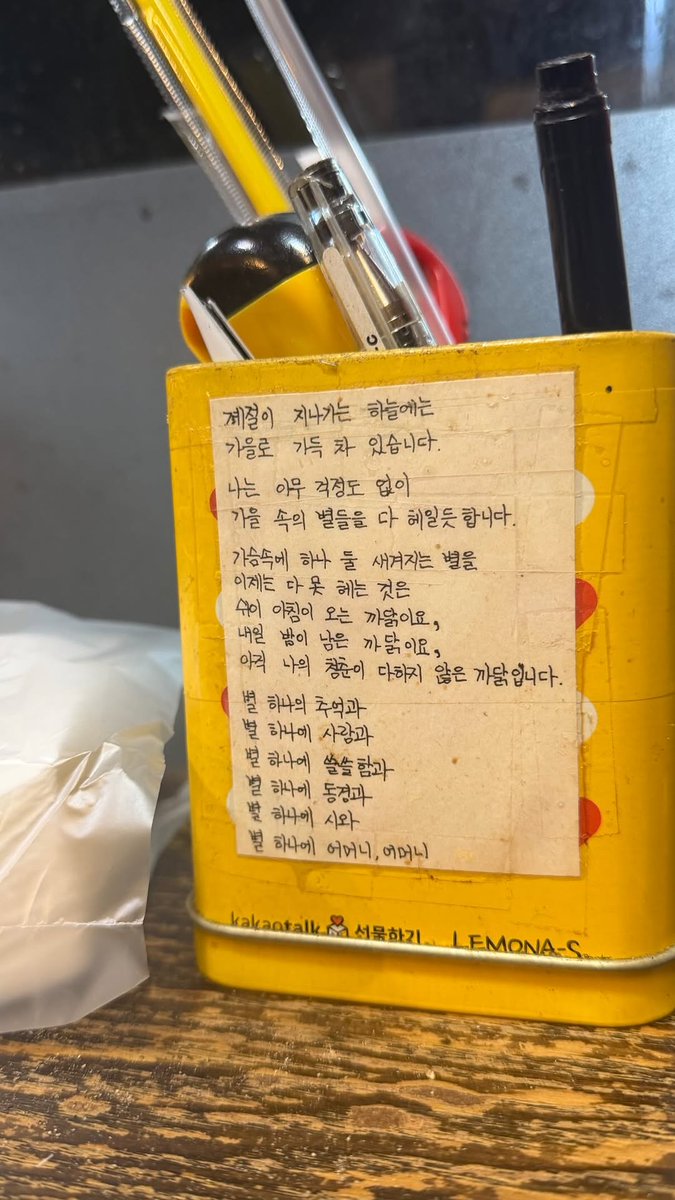 계절이 지나가는 하늘에는
가을로 가득 차 있습니다.
나는 아무 걱정도 없이
가을 속의 별들을 다 헤일듯합니다.
가슴속에 하나 둘 새겨지는 별을
이제는 다 못 헤는 것은
쉬이 아침이 오는 까닭이요,
내일 밤이 남은 까닭이요,
아직 나의 청춘이 다하지 않은 까닭입니다.
별 하나의 추억과
별 하나에 사랑과
별 하나에 쓸쓸함과
별 하나에 동경과
별 하나에 시와
별 하나에 어머니, 어머니
kakaotalk 선물하기 LEMONA-S